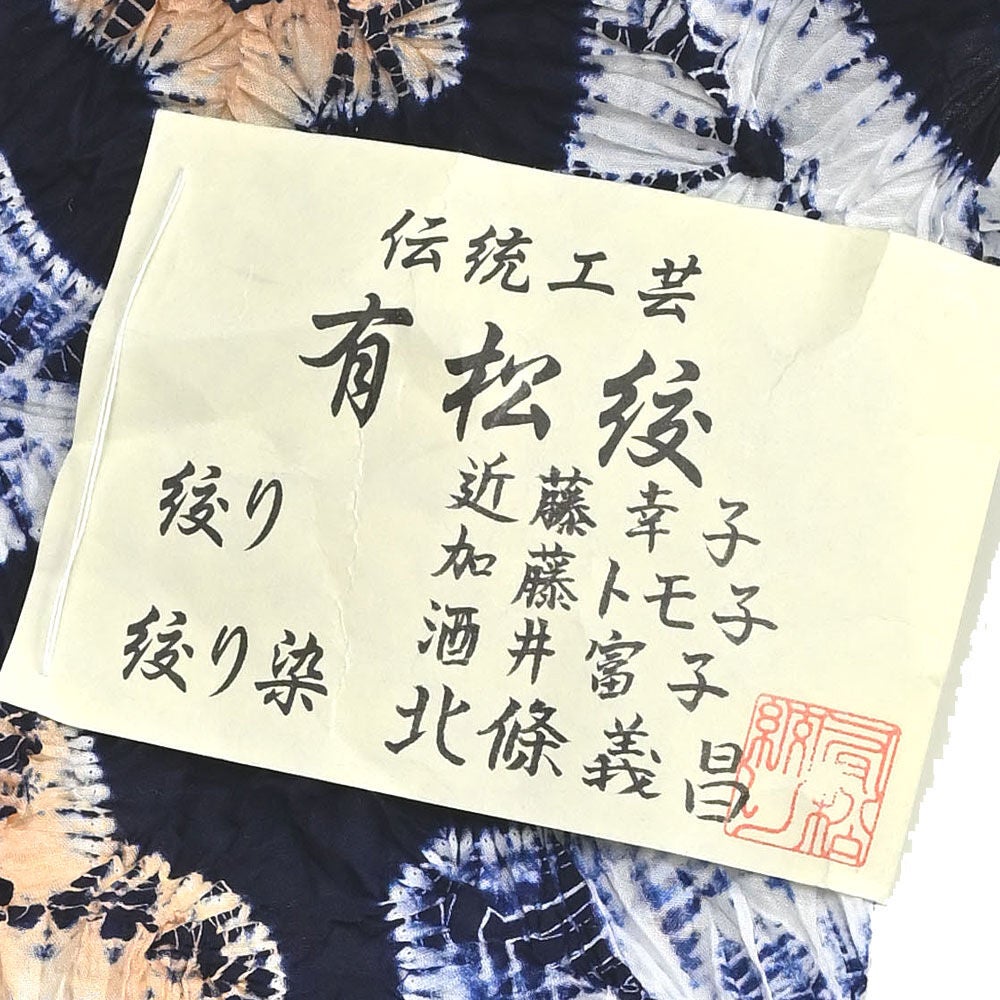 伝統工芸
有松絞
絞り
近藤幸子
加藤トモ子
酒井富子
絞り染
北條義昌
有松
絞り